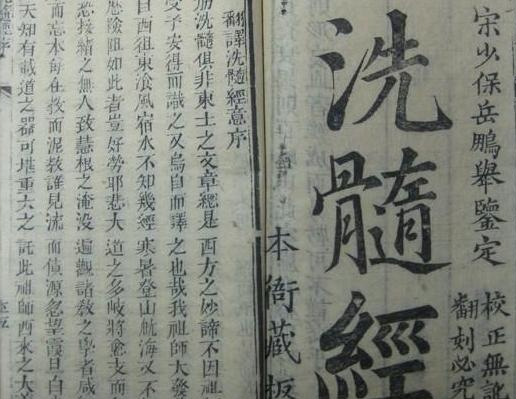 宋少保岳鵬舉鑒定
洗髓經
校正無訛
翻刻必究
本衙藏板
翻譯洗髓經意序
洗髓俱非東土之文章總是西方之妙諦不因祖
受予安得而識之又烏自而譯之也哉我祖師大發
自西徂東飡風宿水不知幾經寒暑登山航海又不
歷險阻如此者豈好勞耶悲大道之多岐將愈支而
恐接緒之無人致慧根之淹没遍觀諸教之學者咸
而忘本每在教而泥教誰見流而源忽望震旦白
天知有載道之器可堪重大之託此祖師西來之大
經序